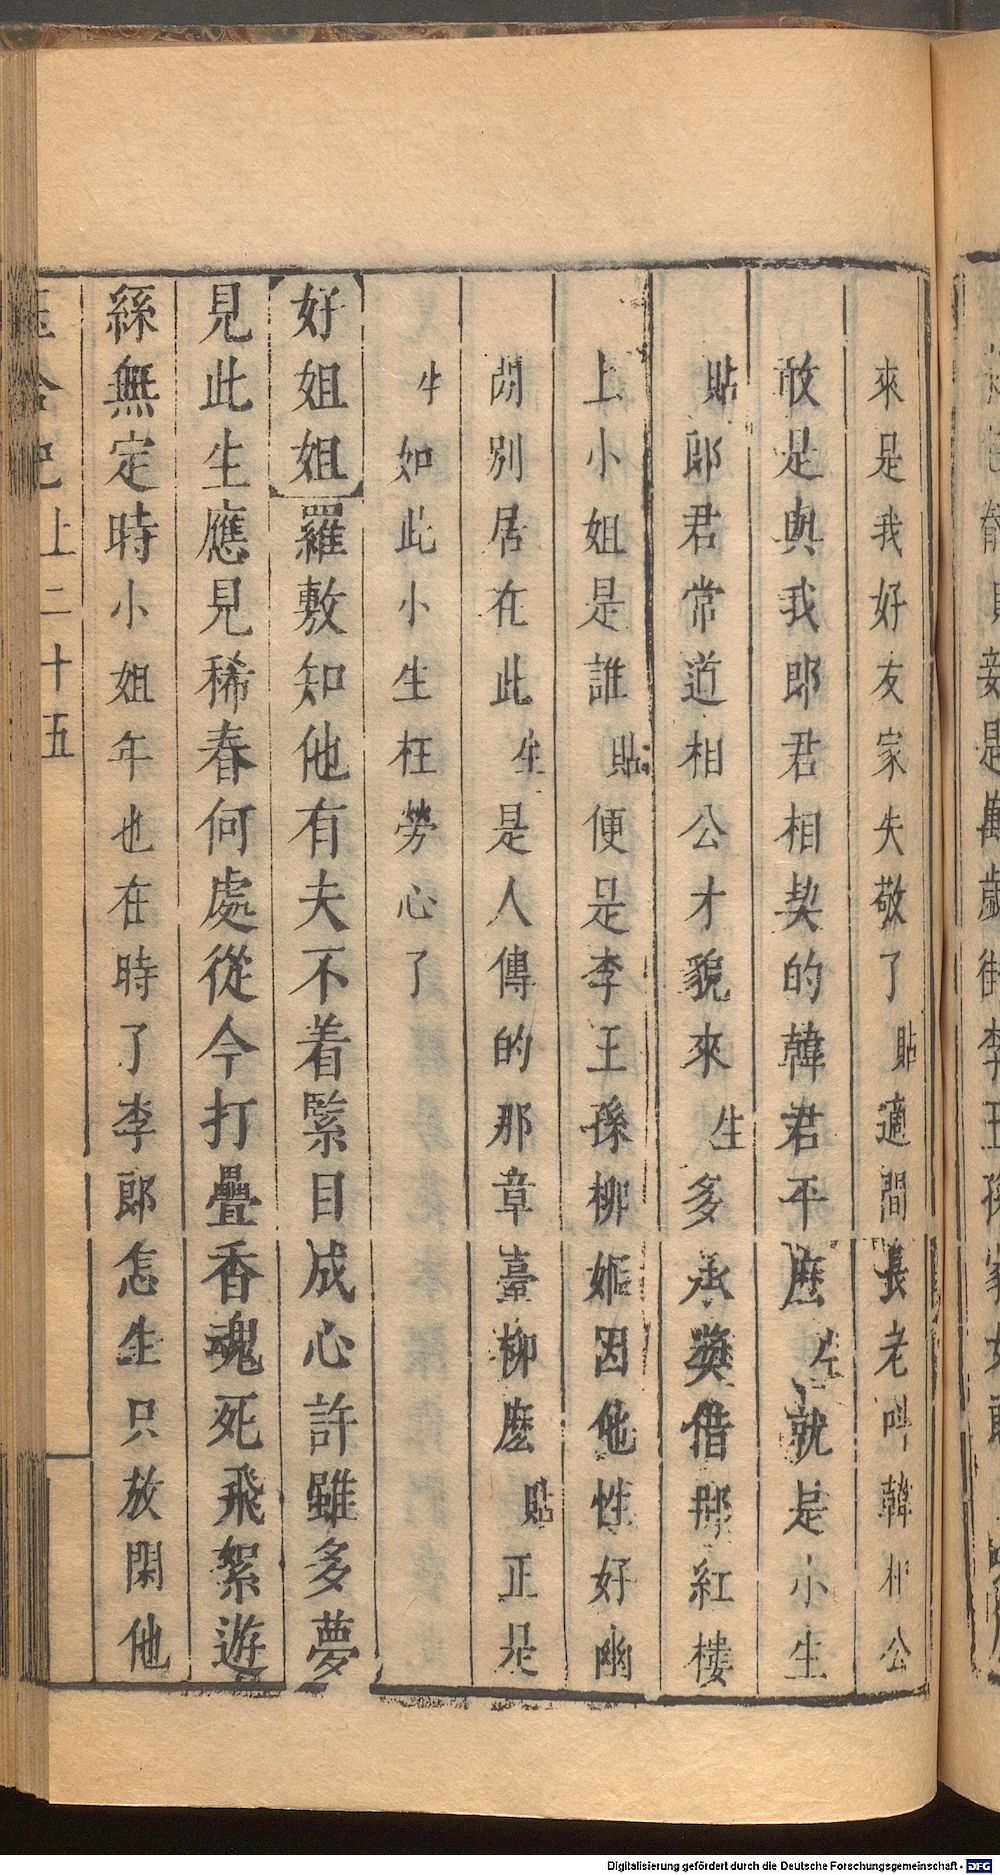 來是我好友家失敬了貼適間長老叫韓相公
敢是與我郎君相契的韓君平麽生就是小生
貼郎君常道相公才貌來生多承奬借那紅樓
上小姐是誰貼便是李王孫柳姬因他性好幽
閒別居在此生是人傳的那章臺柳麽貼正是
生如此小生枉勞心了
好姐姐羅敷知他有夫不着緊目成心許雖多夢
見此生應見稀春何處從今打疊香魂死飛絮遊
絲無定時小姐年也在時了李郎怎生只放閑他
玉合記上二十五
Digitalisierung gefördert durch die Deutsche Forschungsgemeinschaft - DFG